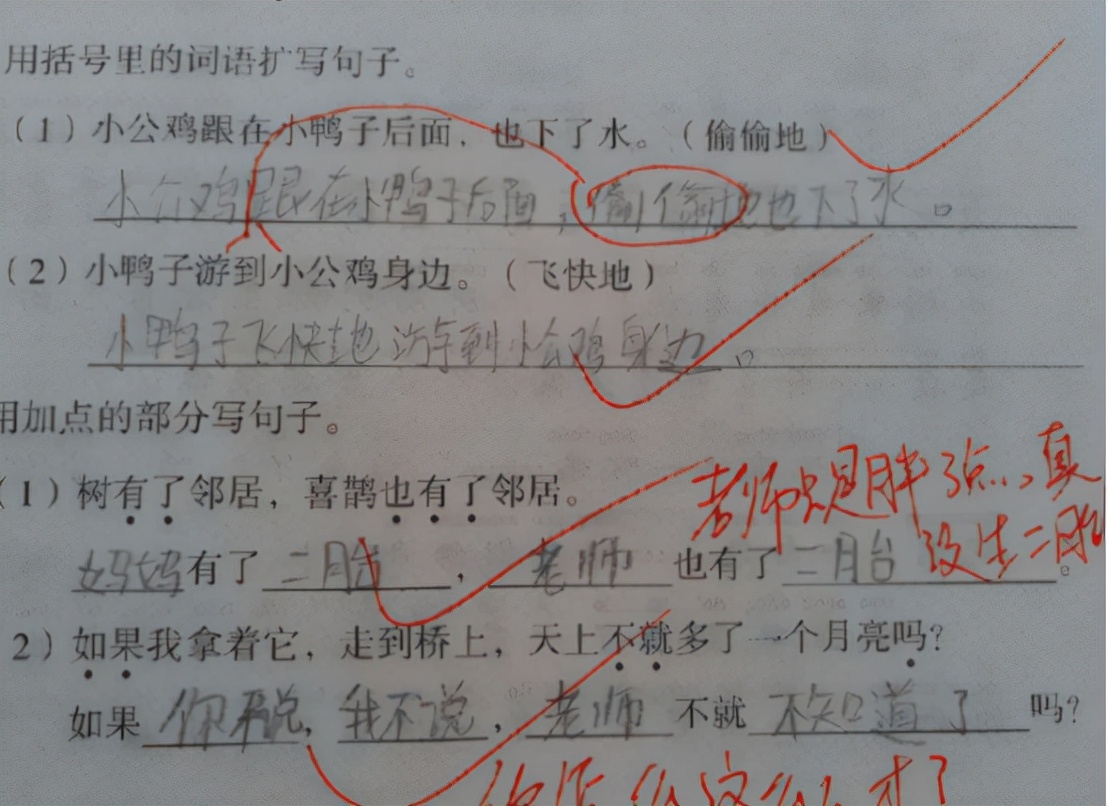 用括号里的词语扩写句子。
（1）小公鸡跟在小鸭子后面，也下了水。（偷偷地）
小公鸡跟在小鸭子后面，偷偷地也下了水。
（2）小鸭子游到小公鸡身边。（飞快地）
小鸭子飞快地游到小公鸡身边。
用加点的部分写句子。
（1）树有了邻居，喜鹊也有了邻居。
老师只是胖了点，真
没生二胎
妈妈有了二胎，老师也有了二胎。
2）如果我拿着它，走到桥上，天上不就多了一个月亮吗？
如果你不说，我不说，老师不就不知道了吗？
你怎么这么有才了